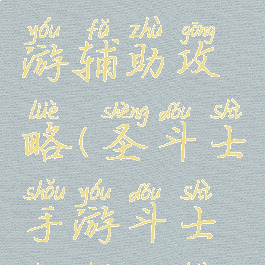 yóu fǔ zhù gōng
游辅助攻
lüè shèng dǒu shì
略(圣斗士
shǒu yóu dǒu shì
手游斗士